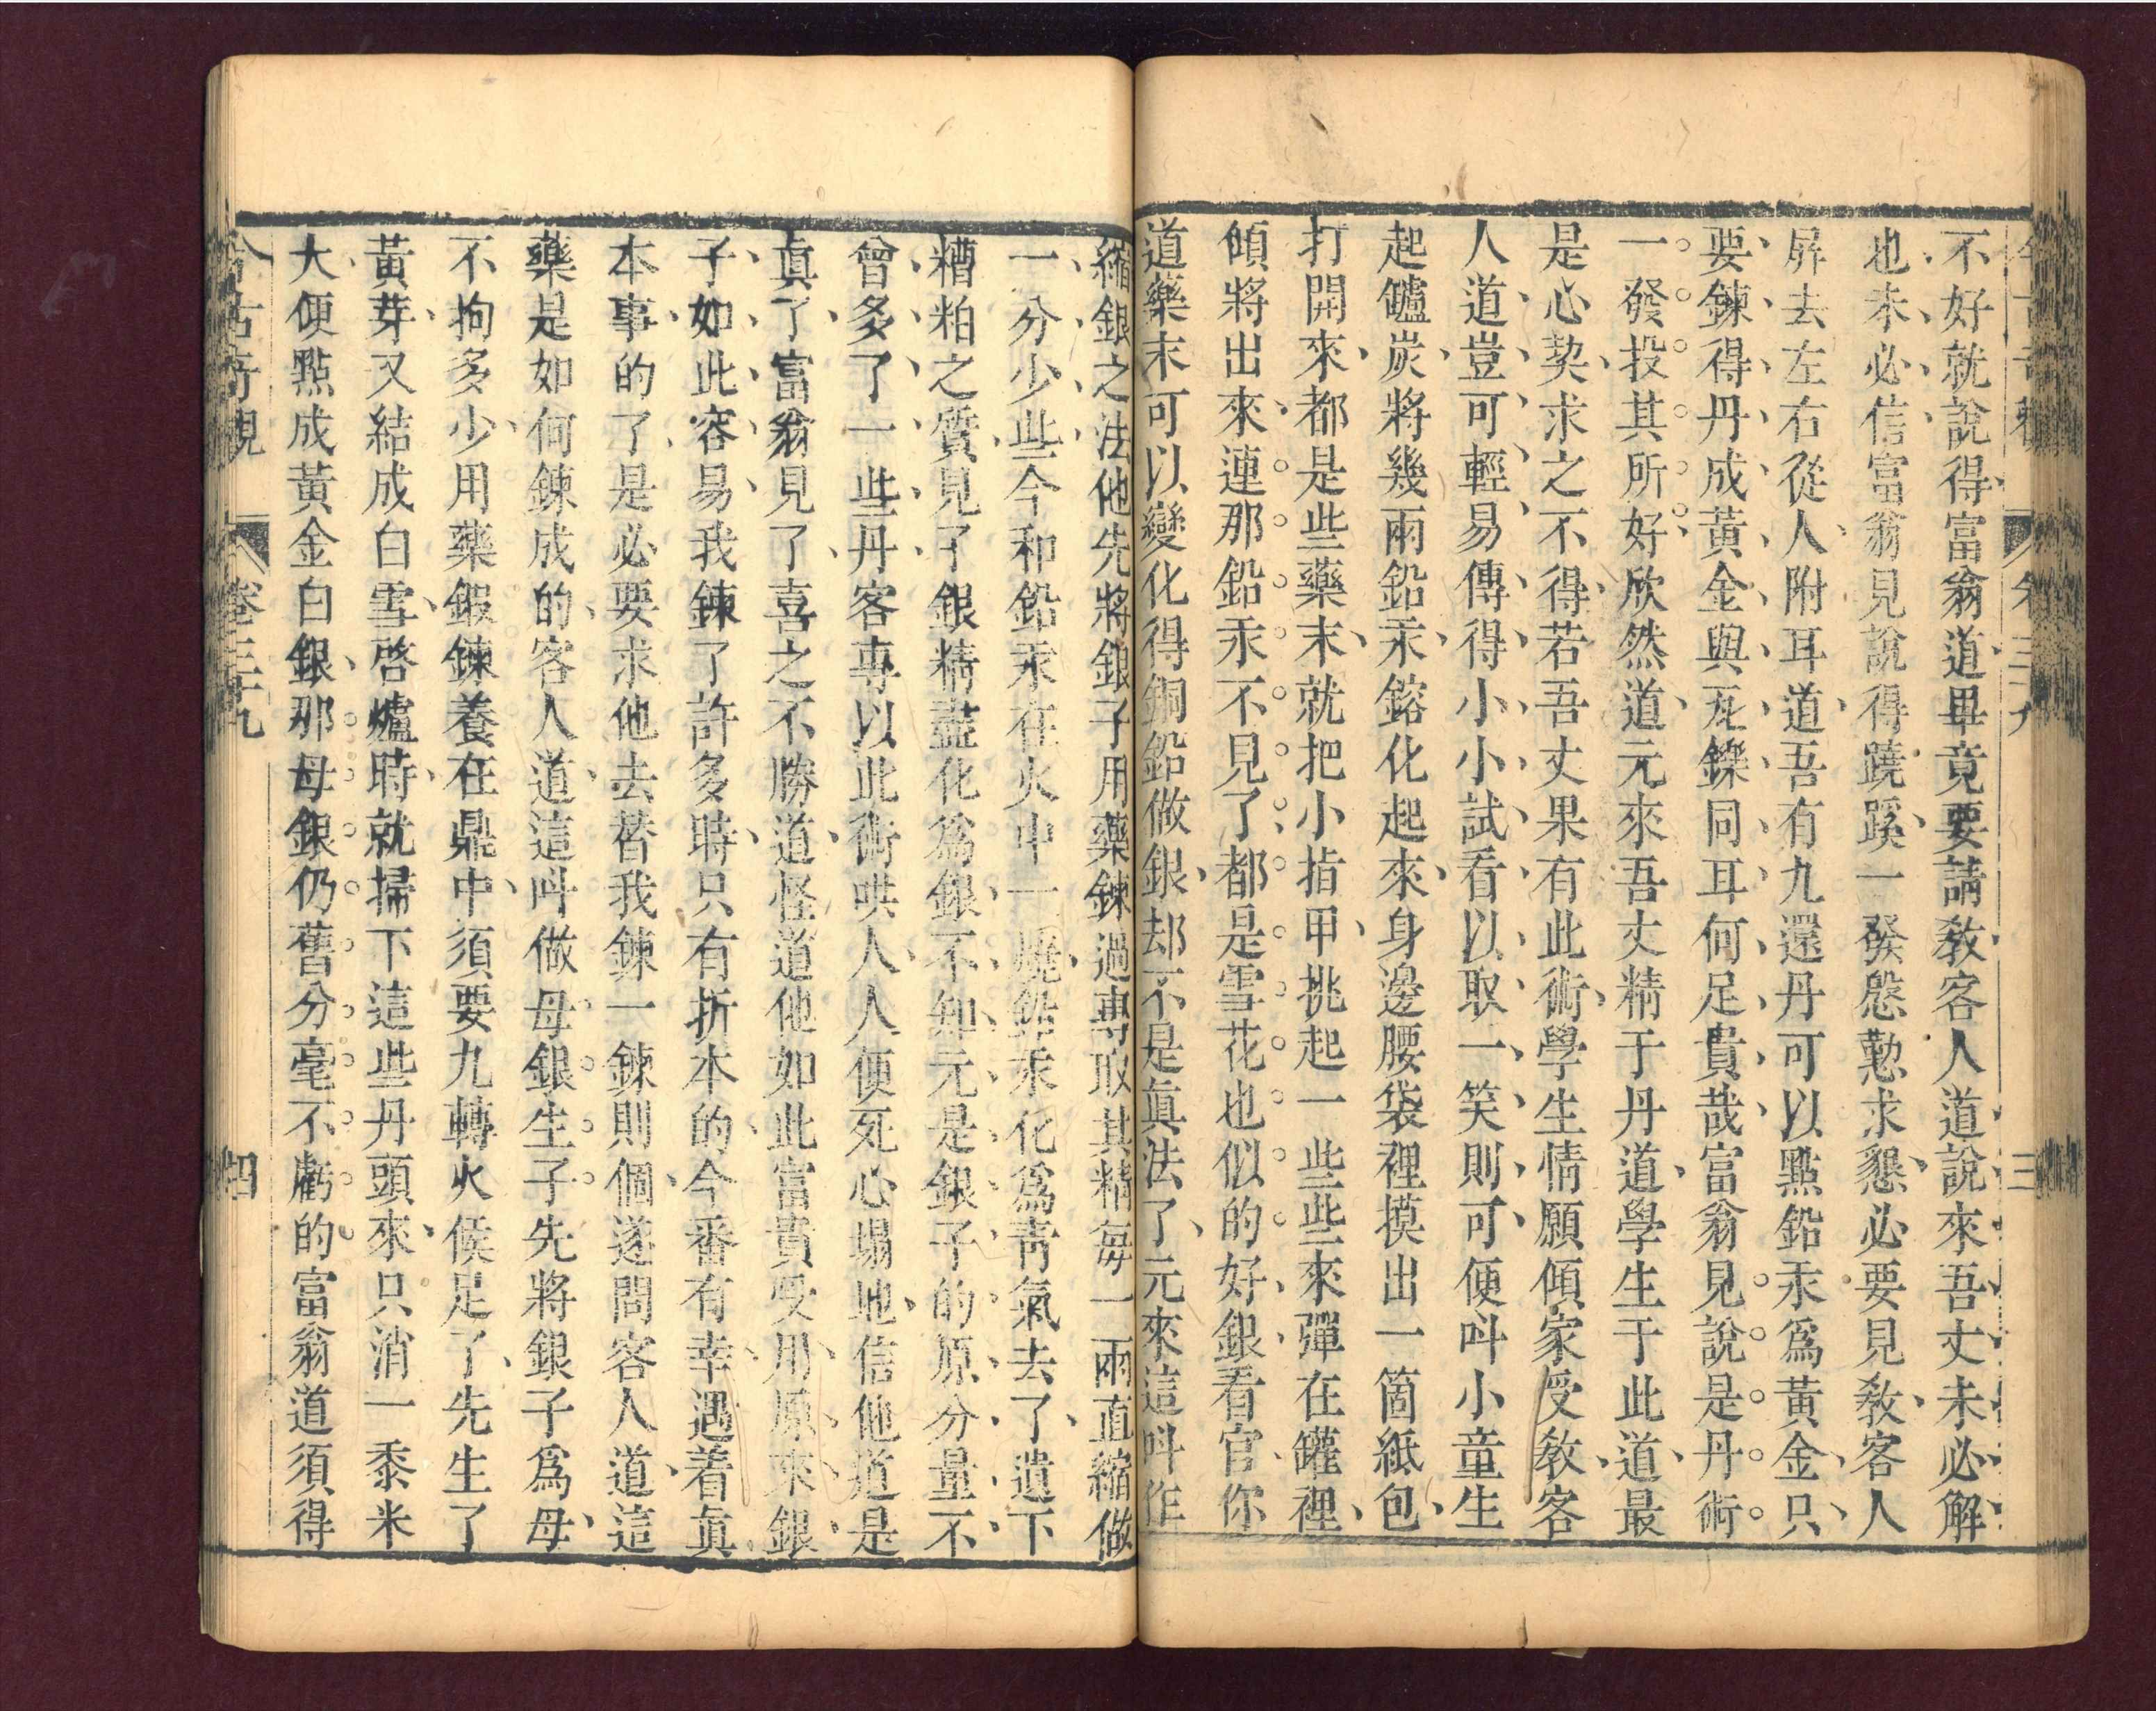 今古奇觀 卷三十九 三
不好就說得富翁道畢竟要請敎客人道說來吾丈未必解
也未必信富翁見說得蹺蹊一發慇懃求懇必要見敎客人
屏去左右從人附耳道吾有九還丹可以點鉛汞爲黃金只
要鍊得丹成黃金與瓦鑠同耳何足貴哉富翁見說是丹術
一發投其所好欣然道元來吾丈精于丹道學生于此道最
是心契求之不得若吾丈果有此術學生情願傾家受敎客
人道豈可輕易傳得小小試看以取一笑則可便呌小童生
起鑪炭將幾兩鉛汞鎔化起來身邊腰袋裡摸出一箇紙包
打開來都是些藥末就把小指甲挑起一些些來彈在罐裡
傾將出來連那鉛汞不見了都是雪花也似的好銀看官你
道藥末可以變化得銅鉛做銀却不是眞法了元來這呌作
縮銀之法他先將銀子用藥鍊過專取其精每一兩直縮做
一分少些今和鉛汞在火中一燒鉛汞化爲靑氣去了遺下
糟粕之質見了銀精盡化爲銀不知元是銀子的原分量不
曾多了一些丹客專以此術哄人人便死心塌地信他道是
眞了富翁見了喜之不勝道怪道他如此富貴受用原來銀
子如此容易我鍊了許多時只有折本的今番有幸遇着眞
本事的了是必要求他去替我鍊一鍊則個遂問客人道這
藥是如何鍊成的客人道這呌做母銀生子先將銀子爲母
不拘多少用藥鍜鍊養在鼎中須要九轉火候足了先生了
黃芽又結成白雪啓爐時就掃下這些丹頭來只消一黍米
大便點成黃金白銀那母銀仍舊分毫不虧的富翁道須得
今古奇觀 卷三十九 四